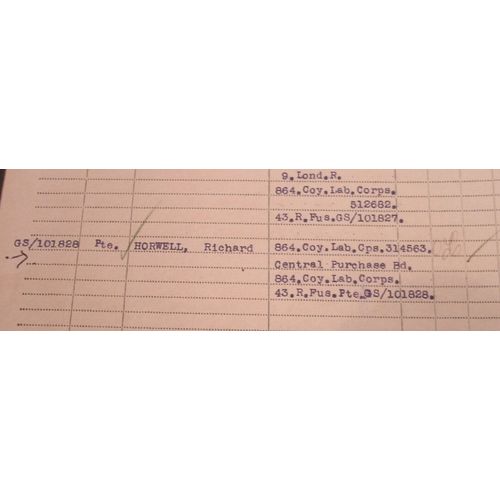 9.Lond.R.
864.Coy.Lab.Corps.
512682.
43.R.Fus.GS/101827.
GS/101828 Pte. HORWELL, Richard 864.Coy.Lab.Cps.314563.
Central Purchase Bd.
864.Coy.Lab.Corps.
43.R.Fus.Pte.GS/101828.